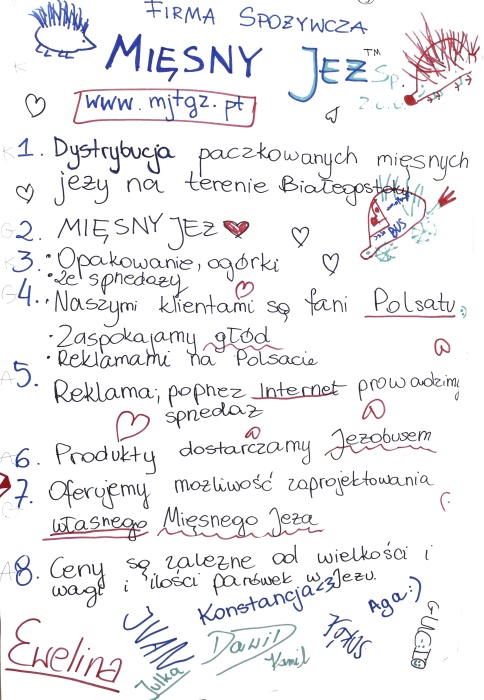 FIRMA SPOŻYWCZA
MIĘSNY JEŻ™ Sp.
z.o.o.
www.mjtgz.pt
1. Dystrybucja paczkowanych mięsnych
jeży na terenie Białegostoku
BUS
2. MIĘSNY JEŻ
3. • Opakowanie, ogórki
• Ze sprzedaży
4. • Naszymi klientami są fani Polsatu :)
• Zaspokajamy głód
• Reklamami na Polsacie
5. Reklama; poprzez Internet prowadzimy
sprzedaż
6. Produkty dostarczamy Jeżobusem
7. Oferujemy możliwość zaprojektowania
własnego Mięsnego Jeża
8. Ceny są zależne od wielkości i
wagi i ilości parówek w Jeżu.
Konstancja<3 Aga:)
Ewelina IVAN Julka Dawid Kamil GUGI